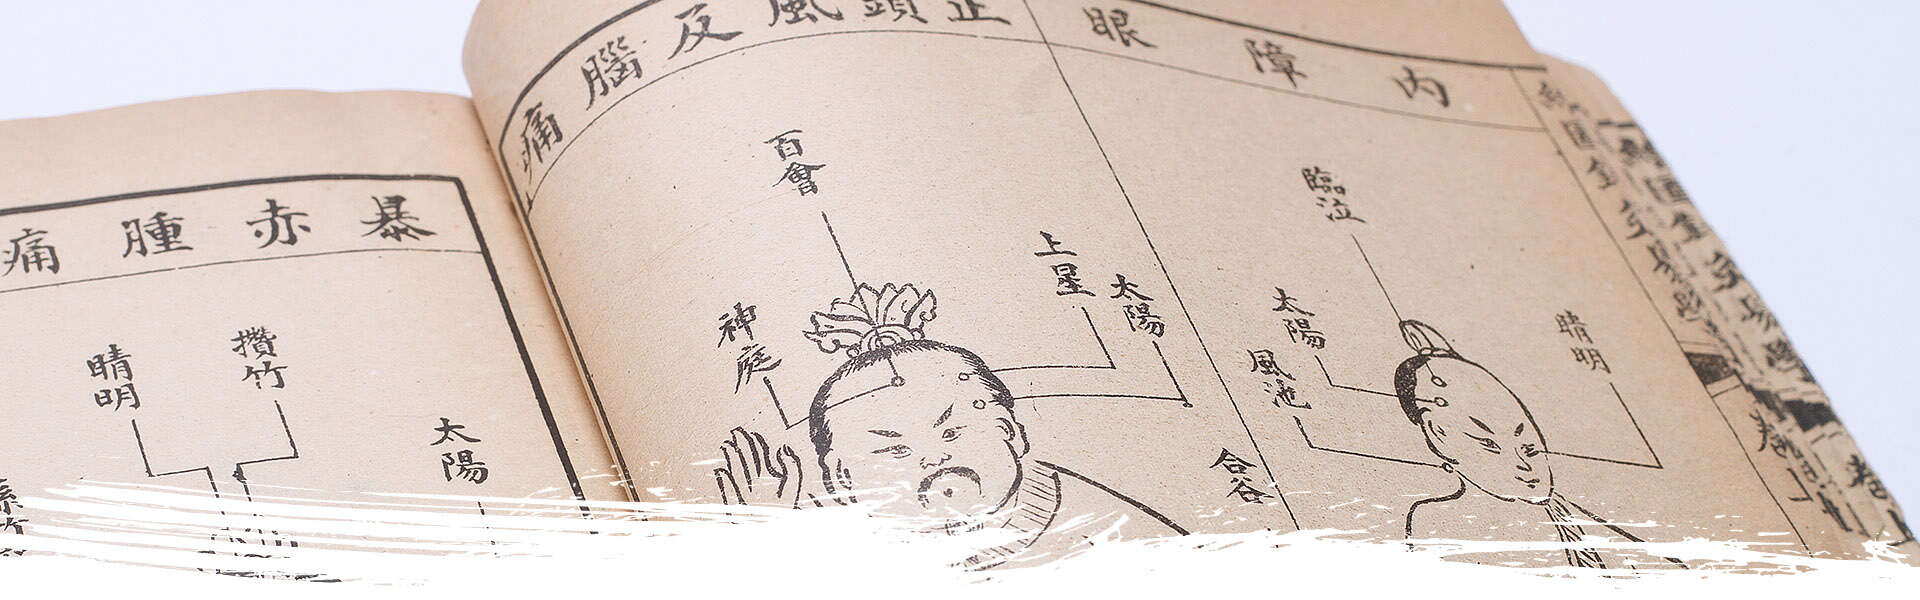 內障眼
臨泣
睛明
太陽
風池
正頭風及腦痛
百會
上星
太陽
神庭
合谷
暴赤腫痛
攢竹
睛明
太陽